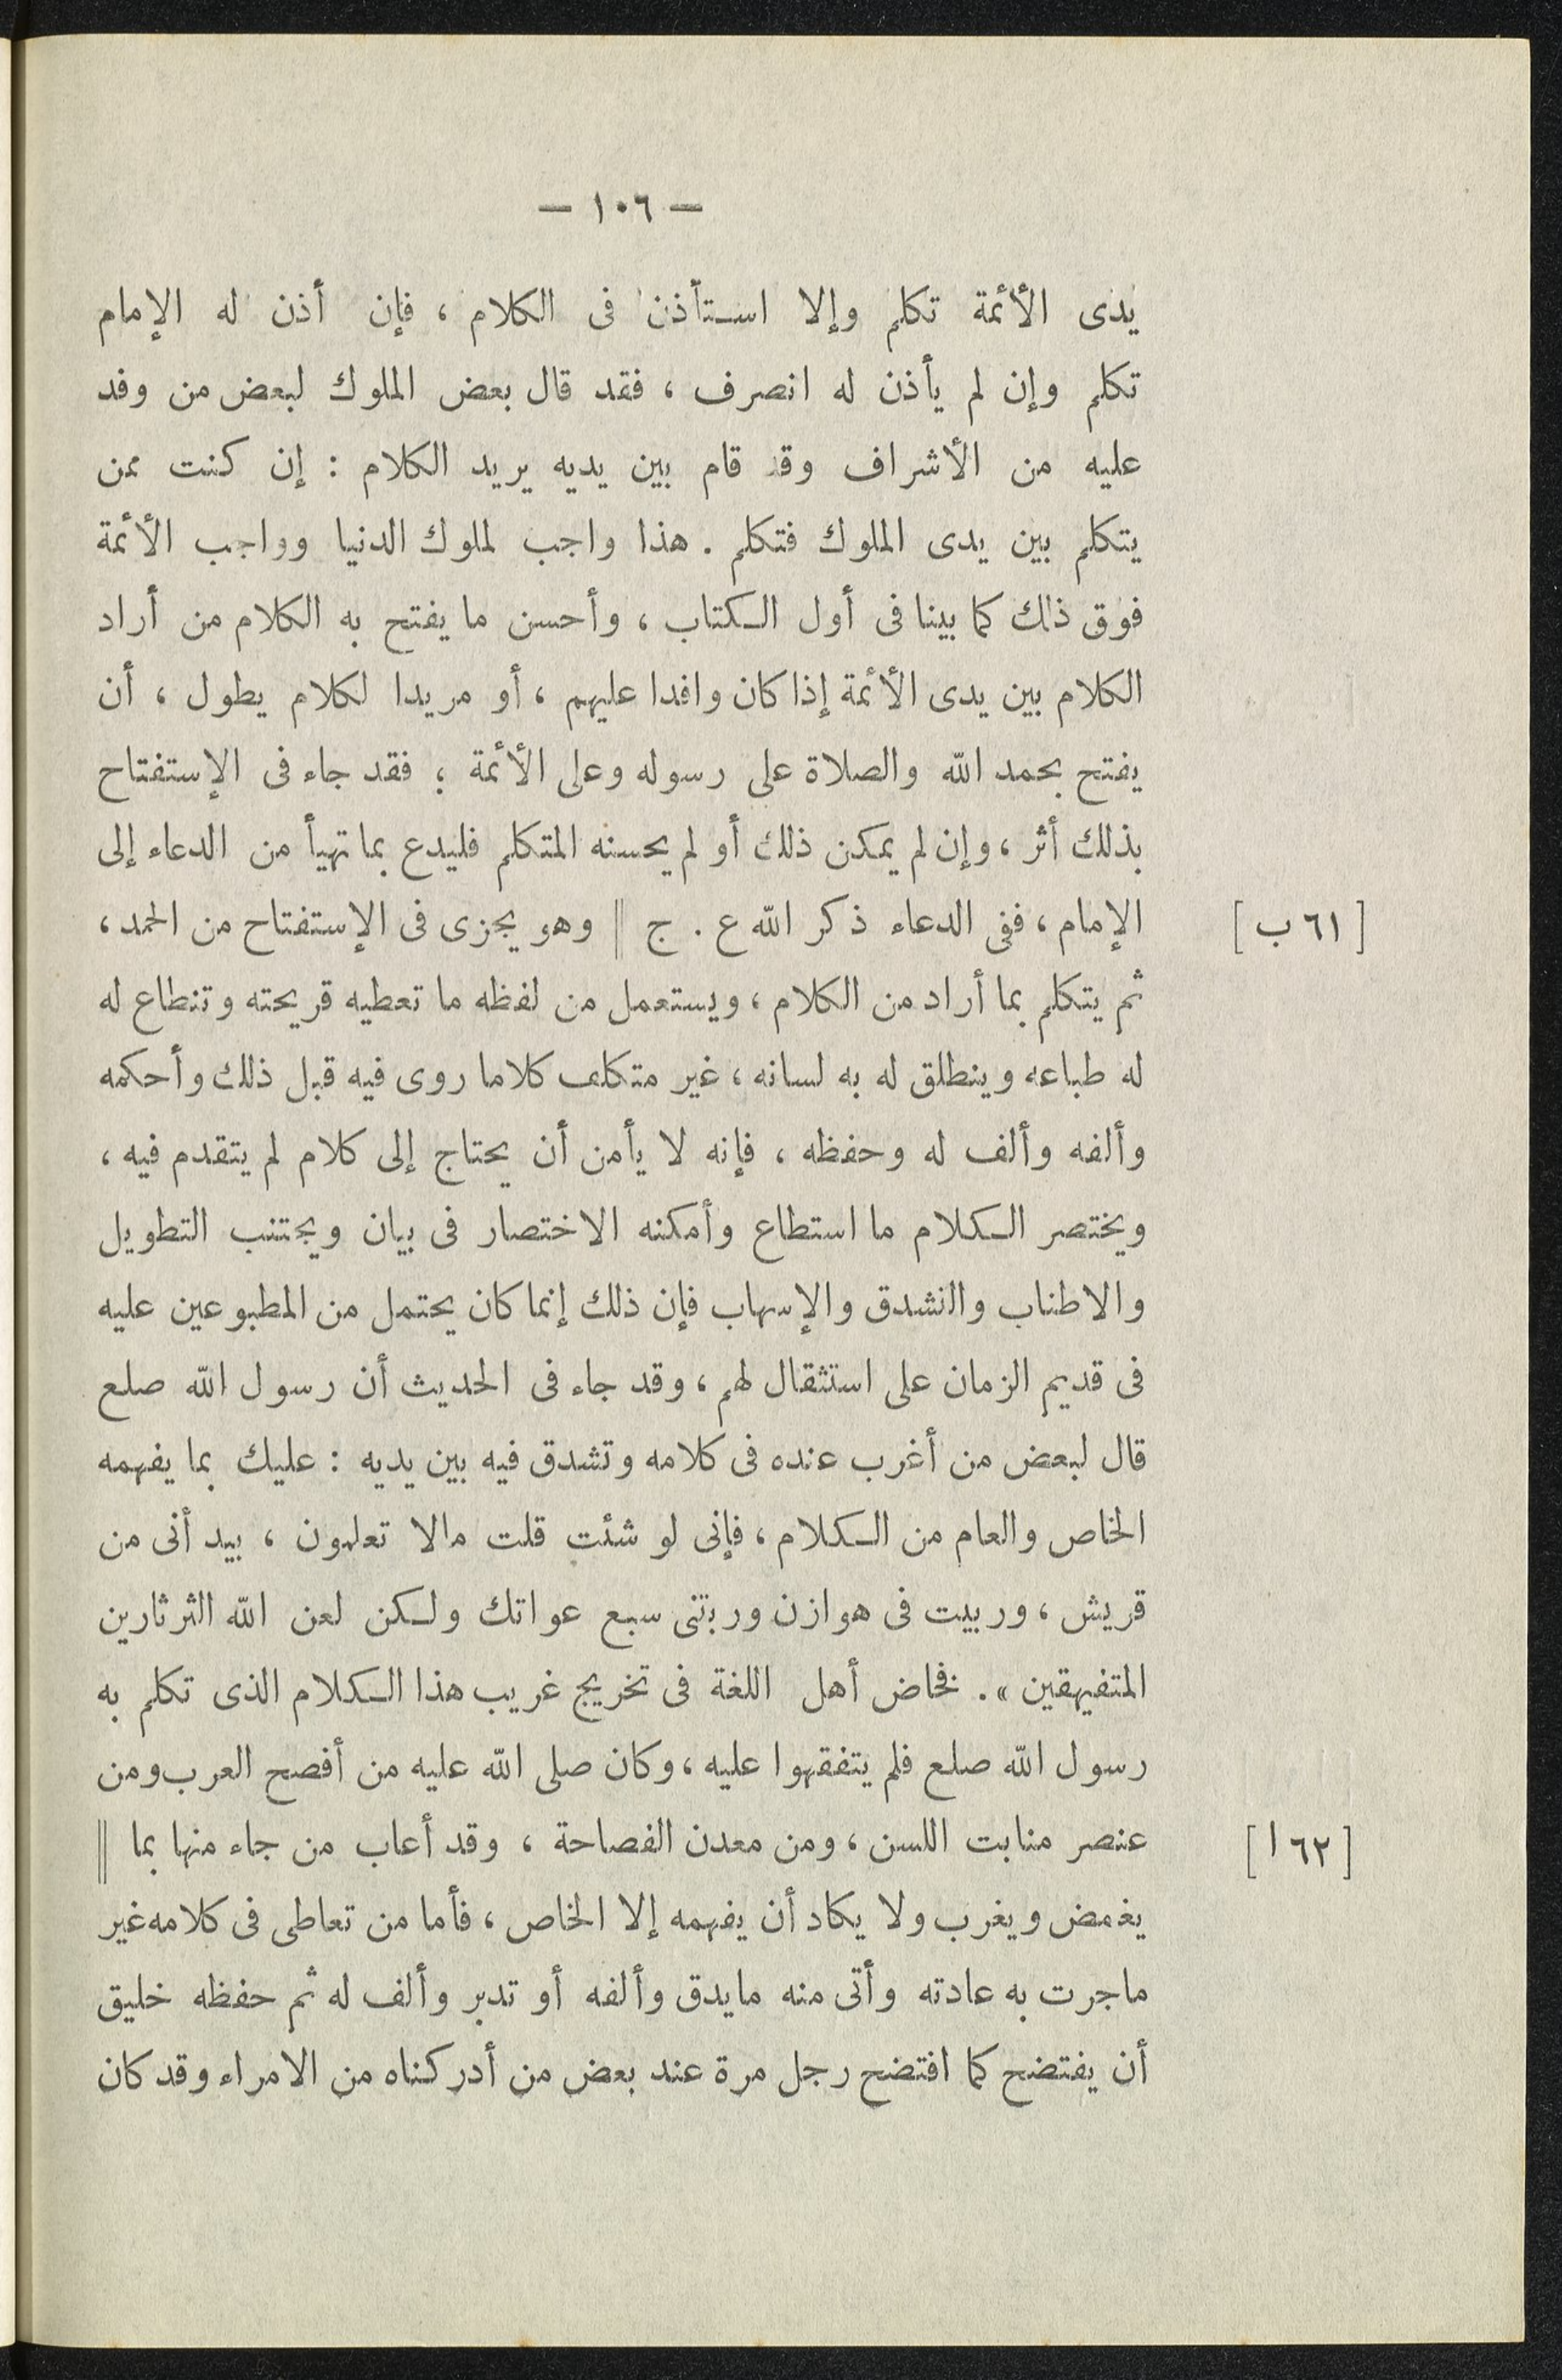 — ١٠٦ —
يدى الأئمة تكلم وإلا استأذن فى الكلام ، فإن أذن له الإمام
تكلم وإن لم يأذن له انصرف ، فقد قال بعض الملوك لبعض من وفد
عليه من الأشراف وقد قام بين يديه يريد الكلام : إن كنت ممن
يتكلم بين يدى الملوك فتكلم . هذا واجب لملوك الدنيا وواجب الأئمة
فوق ذلك كما بينا فى أول الكتاب ، وأحسن ما يفتح به الكلام من أراد
الكلام بين يدى الأئمة إذا كان وافدا عليهم ، أو مريدا لكلام يطول ، أن
يفتح بحمد الله والصلاة على رسوله وعلى الأئمة ؛ فقد جاء فى الإستفتاح
بذلك أثر ، وإن لم يمكن ذلك أو لم يحسنه المتكلم فليدع بما تهيأ من الدعاء إلى
الإمام ، ففى الدعاء ذكر الله ع . ج || وهو يجزى فى الإستفتاح من الحمد ،
[ ٦١ ب ]
ثم يتكلم بما أراد من الكلام ، ويستعمل من لفظه ما تعطيه قريحته وتنطاع له
له طباعه وينطلق له به لسانه ، غير متكلف كلاما روى فيه قبل ذلك وأحكمه
وألفه وألف له وحفظه ، فإنه لا يأمن أن يحتاج إلى كلام لم يتقدم فيه ،
ويختصر الكلام ما استطاع وأمكنه الاختصار فى بيان ويجتنب التطويل
والاطناب والتشدق والإسهاب فإن ذلك إنما كان يحتمل من المطبوعين عليه
فى قديم الزمان على استثقال لهم ، وقد جاء فى الحديث أن رسول الله صلع
قال لبعض من أغرب عنده فى كلامه وتشدق فيه بين يديه : عليك بما يفهمه
الخاص والعام من الكلام ، فإنى لو شئت قلت مالا تعلمون ، بيد أنى من
قريش ، وربيت فى هوازن وربتنى سبع عواتك ولكن لعن الله الثرثارين
المتفيهقين » . فخاض أهل اللغة فى تخريج غريب هذا الكلام الذى تكلم به
رسول الله صلع فلم يتفقهوا عليه ، وكان صلى الله عليه من أفصح العرب ومن
عنصر منابت اللسن ، ومن معدن الفصاحة ، وقد أعاب من جاء منها بما ||
[ ٦٢ ا ]
يغمض ويغرب ولا يكاد أن يفهمه إلا الخاص ، فأما من تعاطى فى كلامه غير
ماجرت به عادته وأتى منه مايدق وألفه أو تدبر وألف له ثم حفظه خليق
أن يفتضح كما افتضح رجل مرة عند بعض من أدركناه من الامراء وقد كان